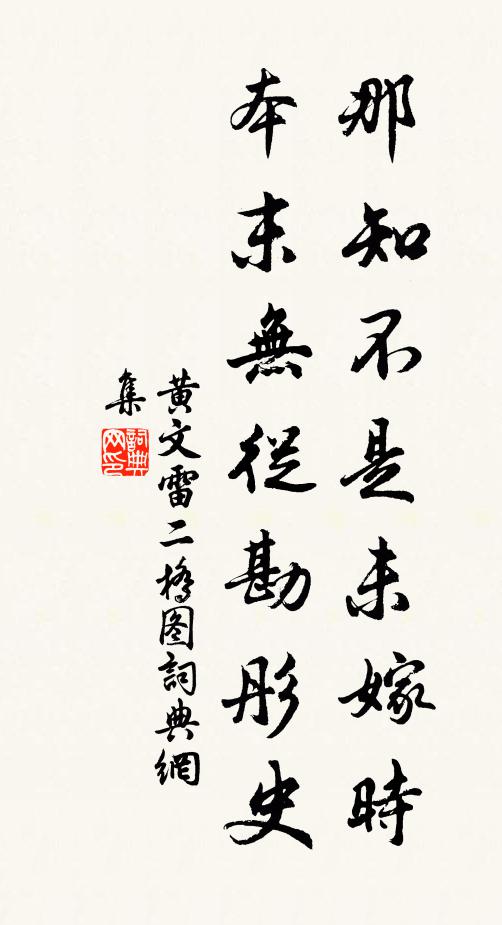 那知不是未嫁時
本末無從勘彤史
黄文雷二橋图詞典網
集
詞典网印